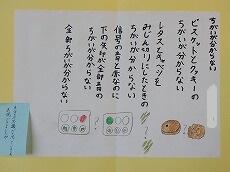 ちがいが分からない
ビスケットとクッキーの
ちがいが分からない
レタスとキャベツを
みじん切りにしたときの
ちがいが分からない
信号の青と赤なのに
下の矢印が全部青の
ちがいが分からない
全部ちがいが分からない